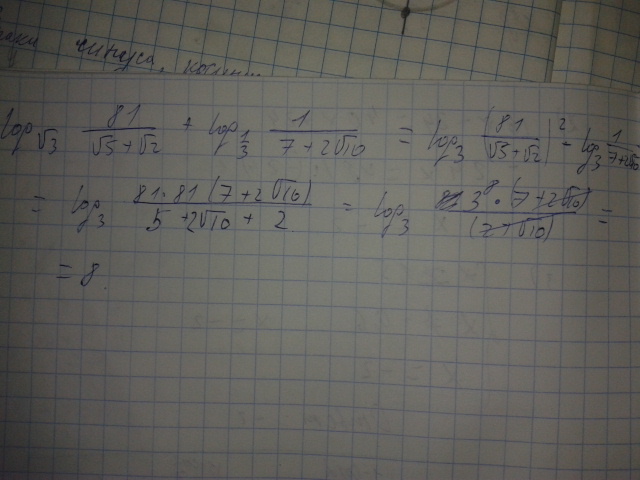 знаки синуса, косин
log_√3 81/(√5+√2) + log_1/3 1/(7+2√10) = log_3 (81/(√5+√2))^2 - log_3 1/(7+2√10)
= log_3 81·81(7+2√10)/(5+2√10+2) = log_3 3^8·(7+2√10)/(7+√10) =
= 8